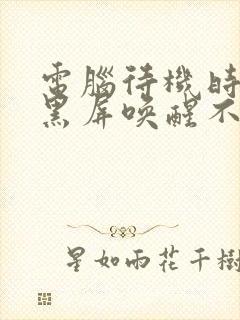 電腦待機時
黑屏喚醒不
星如雨花千樹